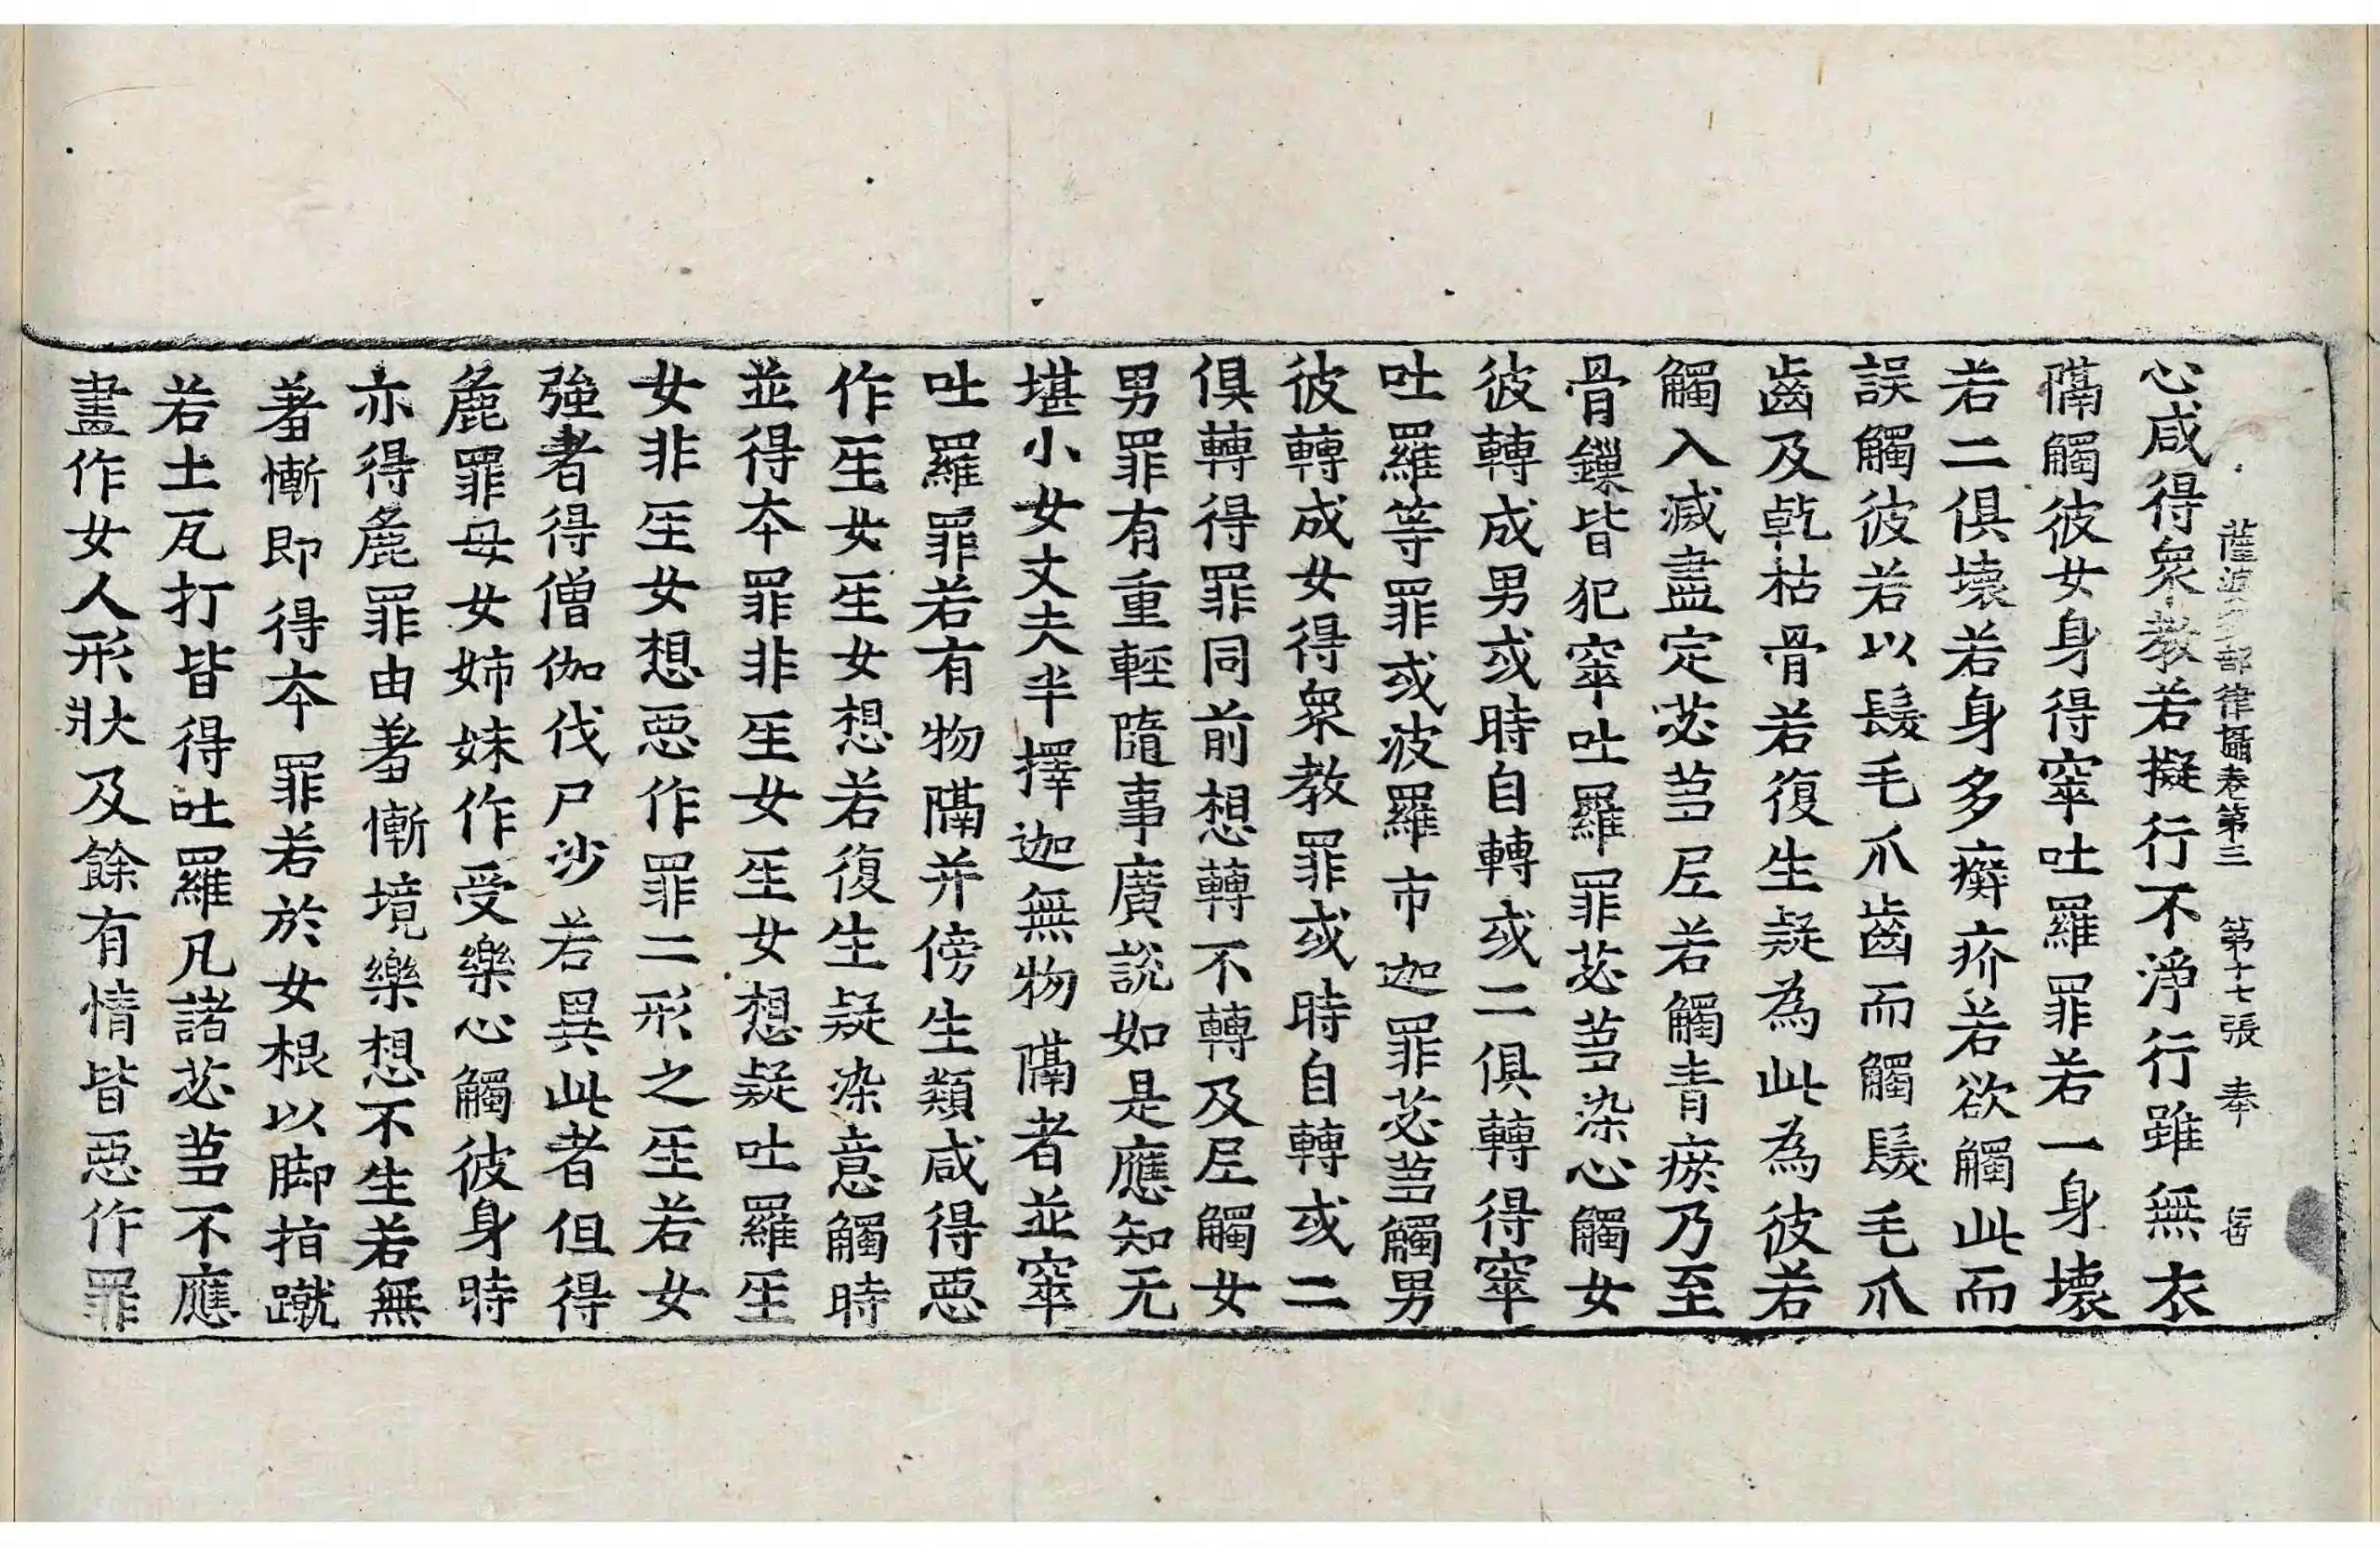 薩婆多部律攝卷第三 第十七張 奉
心咸得衆教若擬行不淨行雖無衣
隔觸彼女身得窣吐羅罪若一身壞
若二俱壞若身多癬疥若欲觸此而
誤觸彼若以髮毛爪齒而觸髮毛爪
齒及乾枯骨若復生疑為此為彼若
觸入滅盡定苾芻尼若觸青瘀乃至
骨鏁皆犯窣吐羅罪苾芻染心觸女
彼轉成男或時自轉或二俱轉得窣
吐羅等罪或波羅市迦罪苾芻觸男
彼轉成女得衆教罪或時自轉或二
俱轉得罪同前想轉不轉及尼觸女
男罪有重輕隨事廣說如是應知无
堪小女丈夫半擇迦無物隔者並窣
吐羅罪若有物隔并傍生類咸得惡
作𤯔女𤯔女想若復生疑染意觸時
並得本罪非𤯔女𤯔女想疑吐羅𤯔
女非𤯔女想惡作罪二形之𤯔若女
強者得僧伽伐尸沙若異此者但得
麁罪母女姊妹作受樂心觸彼身時
亦得麁罪由羞慚境樂想不生若無
羞慚即得本罪若於女根以脚指蹴
若土瓦打皆得吐羅凡諸苾芻不應
畫作女人形狀及餘有情皆惡作罪